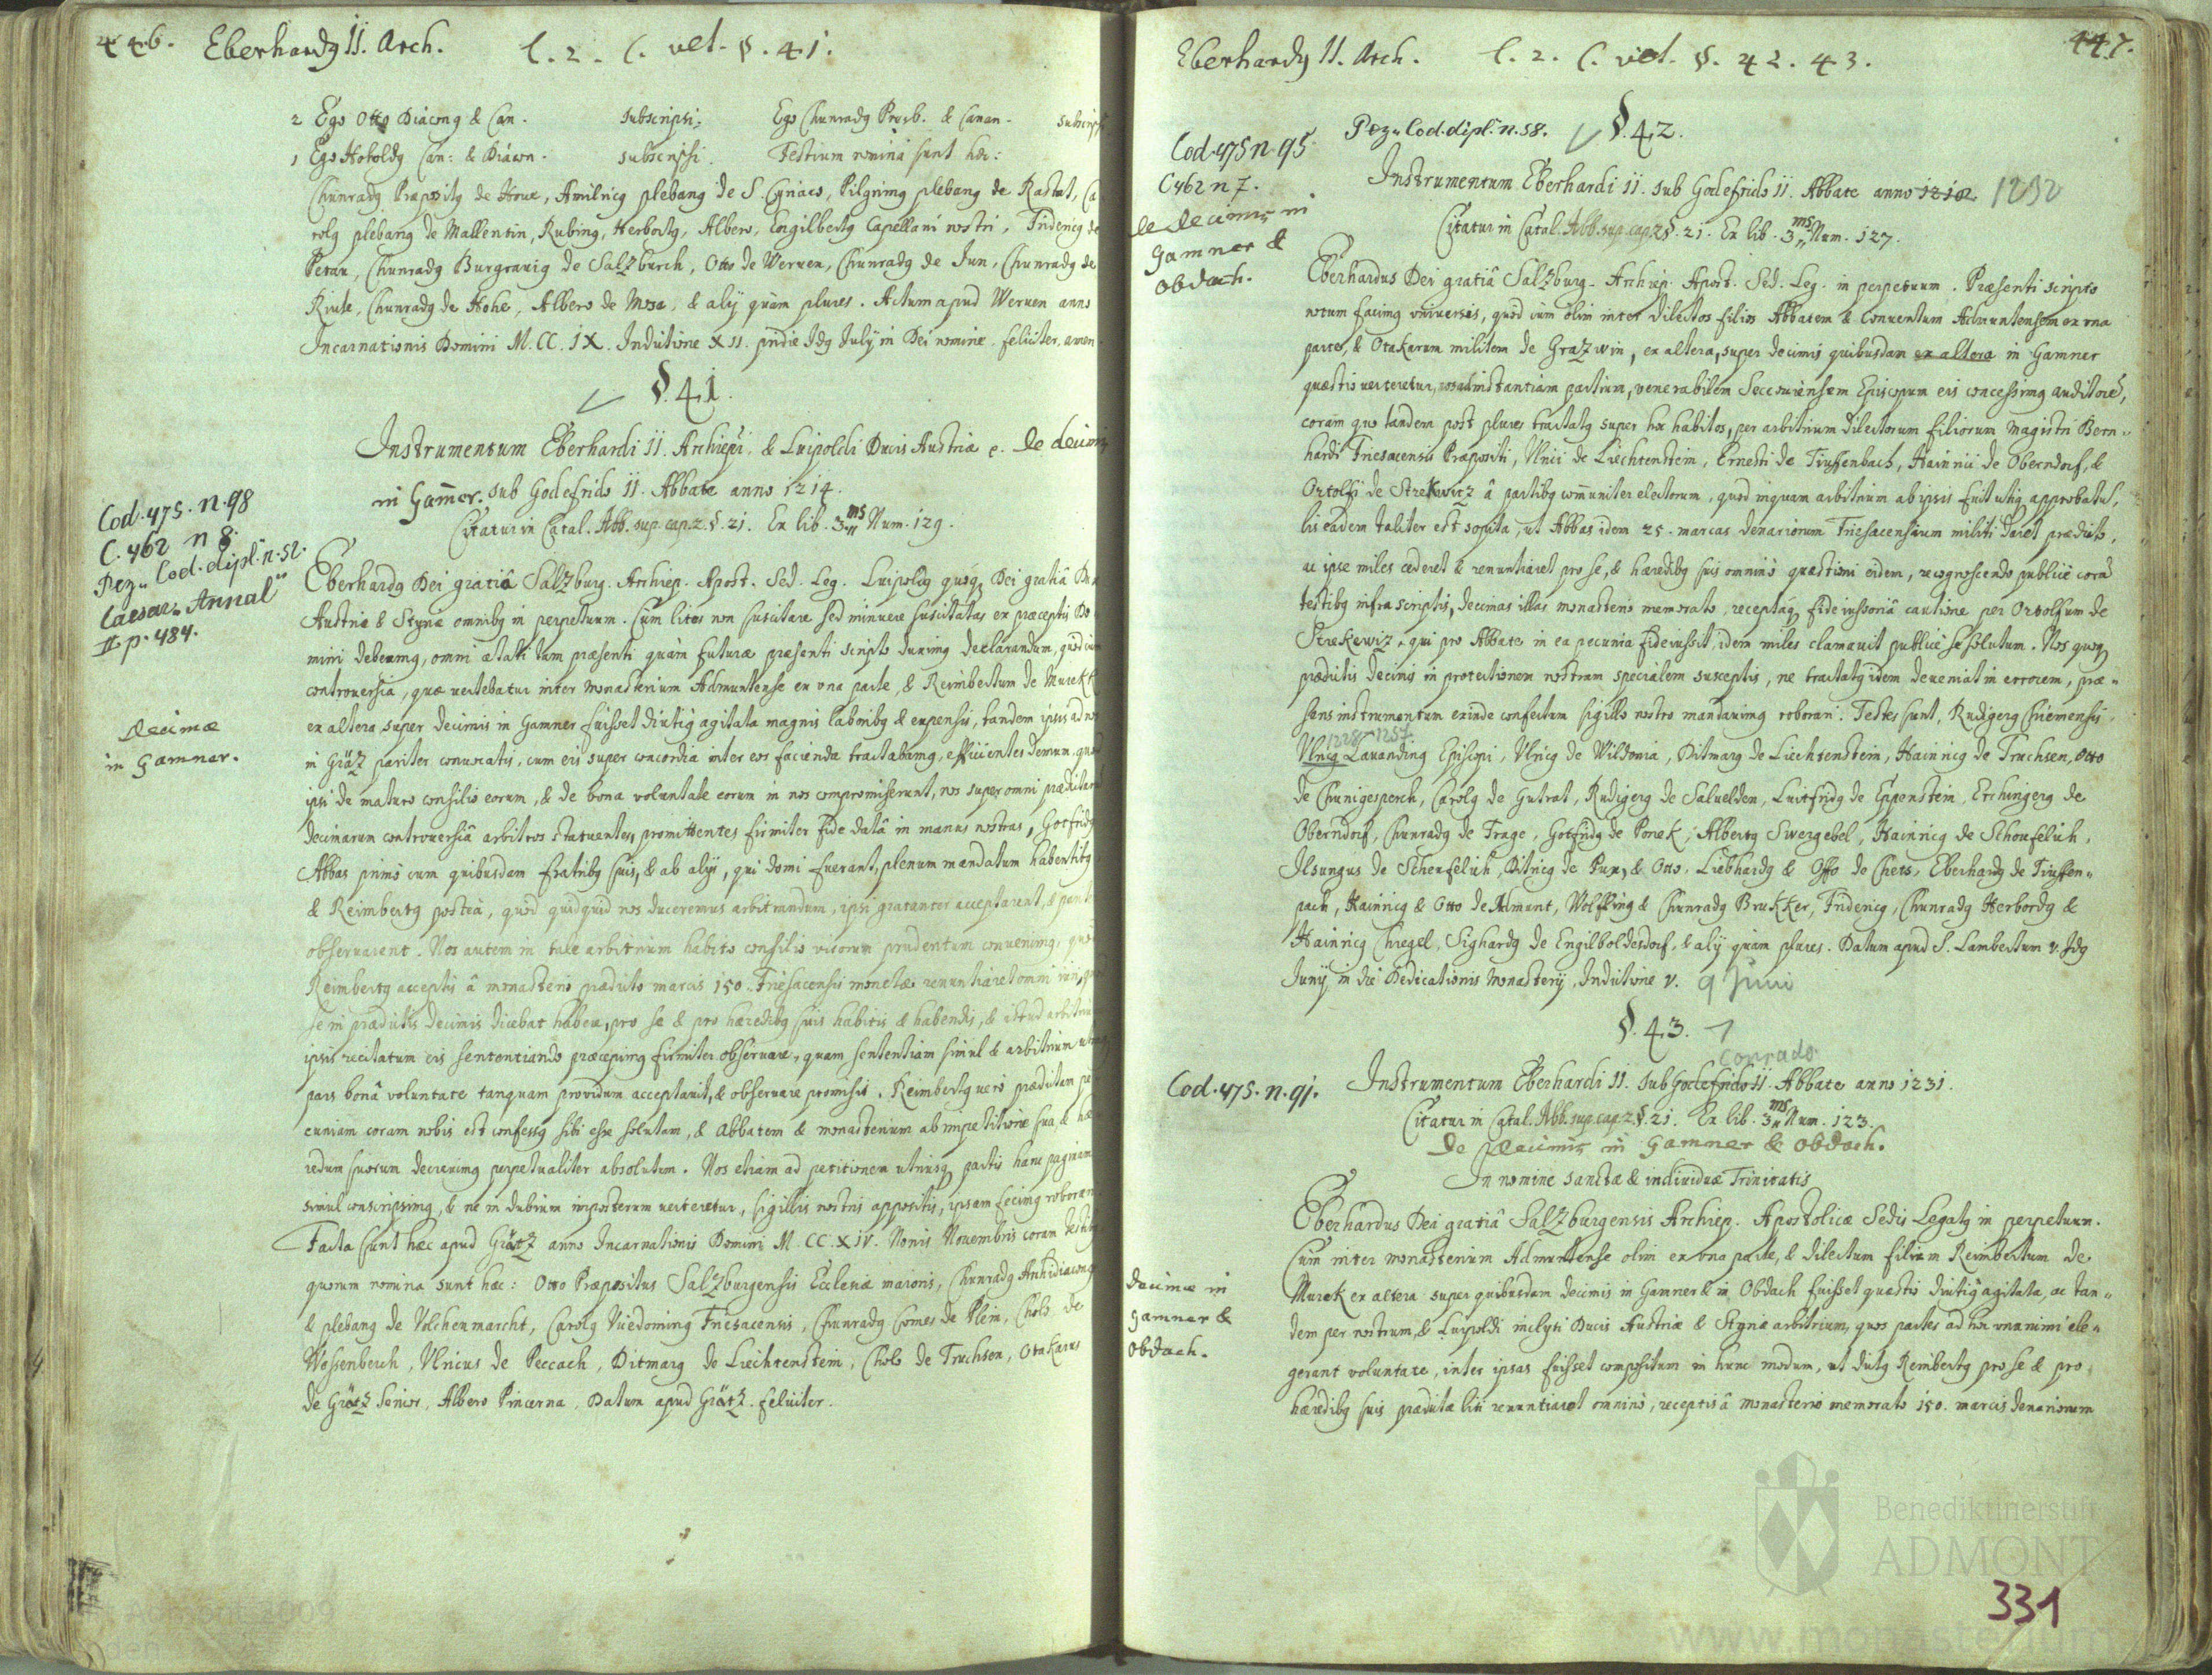 446. Eberhardq II. Arch. l. 2. C. vel. §. 41.
2 Ego Otto Diaconq & Can. subscripsi. Ego Chunradq Presb. & Canon. subscrips
1 Ego Hoholdq Can: & Diacon. subscripsi. Testium nomina sunt hæc:
Chunradq Præpositq de Houe, Amilricq plebanq de S. Cyriaco, Pilgrimq plebanq de Rastat, Ca
rolq plebanq de Mallentin, Rubinq, Herbortq, Albero, Engilbertq Capellani nostri, Fridericq de
Petau, Chunradq Burgrauiq de Salzburch, Otto de Weruen, Chunradq de Jun, Chunradq de
Riute, Chunradq de Hohe, Albero de Mosa, & alij quàm plures. Actum apud Weruen anno
Incarnationis Domini M. CC. IX. Indictione XII. pridie Idq Julij in Dei nomine feliciter amen
§. 41.
Instrumentum Eberhardi II. Archiepi. & Luipoldi Ducis Austriæ e. de decimis
in Gamer. sub Godefrido II. Abbate anno 1214.
Citatur in Catal. Abb. sup. cap. 2. §. 21. Ex lib. 3. ms Num. 129.
Cod. 475. n. 98
C. 462 n 8.
Pez. Cod. dipl. n. 52.
Caesar. Annal
II p. 484.
Eberhardq Dei gratiâ Salzburg. Archiep. Apost. Sed. Leg. Luipoldq quoq Dei gratiâ Dux
Austriæ & Styriæ omnibq in perpetuum. Cum lites non suscitare sed minuere suscitatas ex præceptis Do
mini debeamq, omni ætati tam præsenti quàm futuræ præsenti scripto duximq declarandum, quòd cum
controuersia, quæ vertebatur inter monasterium Admuntense ex vna parte, & Reimbertum de Murekk
ex altera super decimis in Gamner fuisset diutiq agitata magnis laboribq & expensis, tandem ipsis ad nos
in Grätz pariter conuocatis, cum eis super concordia inter eos facienda tractabamq, efficientes demum, quod
decimæ
in Gamner.
ipsi de maturo consilio eorum, & de bona voluntate eorum in nos compromiserunt, nos super omni prædictarum
decimarum controuersiâ arbitros statuentes, promittentes firmiter fide datâ in manus nostras, Gotfridq
Abbas primò cum quibusdam fratribq suis, & ab alijs, qui domi fuerant, plenum mandatum habentibq
& Reimbertq posteà, quòd quidquid nos duceremus arbitrandum, ipsi gratanter acceptarent, &
obseruarent. Nos autem in tale arbitrium habito consilio virorum prudentum conuenimq, quòd
Reimbertq acceptis à monasterio prædicto marcis 150. Friesacensis monetæ renuntiaret omni iuri, quod
se in prædictis decimis dicebat habere, pro se & pro hæredibq suis habitis & habendis, & istud arbitrium
ipsis recitatum eis sententiando præcepimq firmiter obseruare, quam sententiam simul & arbitrium utraq
pars bonâ voluntate tanquam prouidum acceptauit, & obseruare promisit. Reimbertq verò prædictam pe
cuniam coram nobis est confessq sibi esse solutam, & Abbatem & monasterium ab impetitione sua, & hæ
redum suorum decreuimq perpetualiter absolutum. Nos etiam ad petitionem utriusq partis hanc paginam
simul conscripsimq, & ne in dubium imposterum verteretur, sigillis nostris appositis, ipsam fecimq roborari
Facta sunt hæc apud Grätz anno Incarnationis Domini M. CC. XIV. Nonis Nouembris coram testibq
quorum nomina sunt hæc: Otto Præpositus Salzburgensis Ecclesiæ maioris, Chunradq Archidiaconq
& plebanq de Volchenmarcht, Carolq Vicedominq Friesacensis, Chunradq Comes de Plein, Cholo de
Wessenberch, Vlricus de Peccach, Ditmarq de Liechtenstein, Cholo de Truchsen, Otakarus
de Grätz Senior, Albero Pincerna, Datum apud Grätz feliciter.
Eberhardq II. Arch. l. 2. C. vel. §. 42. 43. 447.
Pez. Cod. dipl. n. 58. §. 42.
Cod. 475 n. 95
C 462 n 7.
de decimis in
Gamner &
Obdach.
Instrumentum Eberhardi II. sub Godefrido II. Abbate anno 1212. 1232
Citatur in Catal. Abb. sup. cap. 2 §. 21. Ex lib. 3. ms Num. 127.
Eberhardus Dei gratiâ Salzburg. Archiep. Apost. Sed. Leg. in perpetuum. Præsenti scripto
notum facimq vniuersis, quòd cum olim inter dilectos filios Abbatem & Conuentum Admuntensem ex vna
parte, & Otakarum militem de Grazwin, ex altera, super decimis quibusdam ex altera in Gamner
quæstio verteretur, nos ad instantiam partium, venerabilem Seccouiensem Episcopum eis concessimq auditorem,
coram quo tandem post plures tractatq super hoc habitos, per arbitrium dilectorum filiorum Magistri Bern-
hardi Friesacensis Præpositi, Vlrici de Liechtenstein, Ernesti de Tiuffenbach, Hainrici de Oberndorf, &
Ortolfi de Strekwiz à partibq communiter electorum, quod inquam arbitrium ab ipsis fuit utiq approbatum,
lis eadem taliter est sopita, ut Abbas idem 25. marcas denariorum Friesacensium militi daret prædicto,
ac ipse miles cederet & renuntiaret pro se, & hæredibq suis omninò quæstioni eidem, recognoscendo publicè coram
testibq infra scriptis, decimas illas monasterio memorato, receptáq fideiussoriâ cautione per Ortolfum de
Strekewiz, qui pro Abbate in ea pecunia fideiussit, idem miles clamauit publicè se solutum. Nos quoq
prædictis decimis in protectionem nostram specialem susceptis, ne tractatq idem deueniat in errorem, præ-
sens instrumentum exinde confectum sigillo nostro mandauimq roborari. Testes sunt, Rudigerq Chiemensis,
1228-1257.
Vlricq Lauandinq Episcopi, Vlricq de Wildonia, Ditmarq de Liechtenstein, Hainricq de Truchsen, Otto
de Chunigesperch, Carolq de Gutrat, Rudigerq de Saluelden, Luitfridq de Eppenstein, Erchingerq de
Oberndorf, Chunradq de Frage, Gotfridq de Ponek, Albertq Swergebel, Hainricq de Schouflich,
Ilsungus de Scheuflich, Ditricq de Pux, & Otto, Liebhardq & Offo de Chets, Eberhardq de Tiuffen-
pach, Hainricq & Otto de Admunt, Wolffing & Chunradq Brukker, Fridericq, Chunradq Herbordq &
Hainricq Chregel, Sighardq de Engilboldesdorf, & alij quàm plures. Datum apud S. Lambertum V. Idq
Junij in die Dedicationis Monasterij, Indictione V. 9 Juni
§. 43.
Conrado
Cod. 475. n. 91. Instrumentum Eberhardi II. sub Godefrido II. Abbate anno 1231.
Citatur in Catal. Abb. sup. cap. 2 §. 21. Ex lib. 3. ms Num. 123.
de decimis in Gamner & Obdach.
In nomine sanctæ & indiuiduæ Trinitatis
Eberhardus Dei gratiâ Salzburgensis Archiep. Apostolicæ Sedis Legatq in perpetuum.
Cum inter monasterium Admuntense olim ex vna parte, & dilectum filium Reimbertum de
decimæ in
Gamner &
Obdach.
Murek ex altera super quibusdam decimis in Gamner & in Obdach fuisset quæstio diutiq agitata, ac tan-
dem per nostrum, & Luipoldi inclyti Ducis Austriæ & Styriæ arbitrium, quos partes ad hoc vnanimi ele-
gerant voluntate, inter ipsas fuisset compositum in hunc modum, ut dictq Reimbertq pro se & pro
hæredibq suis prædictæ liti renuntiaret omninò, receptis à monasterio memorato 150. marcis denariorum
Benediktinerstift
ADMONT
331
Admont 2009
www.monasterium